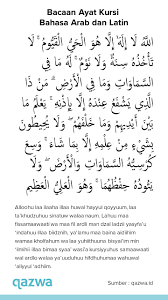 Bacaan Ayat Kursi
Bahasa Arab dan Latin
اللَّهُ لَا إِلَهَ إِلَّا هُوَ الْحَيُّ الْقَيُّومُ ۚ لَا
تَأْخُذُهُ سِنَةٌ وَلَا نَوْمٌ ۚ لَهُ مَا فِي
السَّمَاوَاتِ وَمَا فِي الْأَرْضِ ۗ مَنْ ذَا
الَّذِي يَشْفَعُ عِنْدَهُ إِلَّا بِإِذْنِهِ ۚ يَعْلَمُ مَا
بَيْنَ أَيْدِيهِمْ وَمَا خَلْفَهُمْ ۖ وَلَا يُحِيطُونَ
بِشَيْءٍ مِنْ عِلْمِهِ إِلَّا بِمَا شَاءَ ۚ وَسِعَ كُرْسِيُّهُ
السَّمَاوَاتِ وَالْأَرْضَ ۖ وَلَا
يَئُودُهُ حِفْظُهُمَا ۚ وَهُوَ الْعَلِيُّ الْعَظِيمُ
Alloohu laa ilaaha illaa huwal hayyul qoyyuum, laa
ta'khudzuhuu sinatuw walaa naum. Lahuu maa
fissamaawaati wa maa fil ardli man dzal ladzii yasyfa'u
'indahuu illaa biidznih, ya'lamu maa baina aidiihim
wamaa kholfahum wa laa yuhiithuuna bisyai'im min
'ilmihii illaa bimaa syaa' wasi'a kursiyyuhus samaawaati
wal ardlo walaa ya'uuduhuu hifdhuhumaa wahuwal
'aliyyul 'adhiim.
qazwa
Sumber : qazwa.id